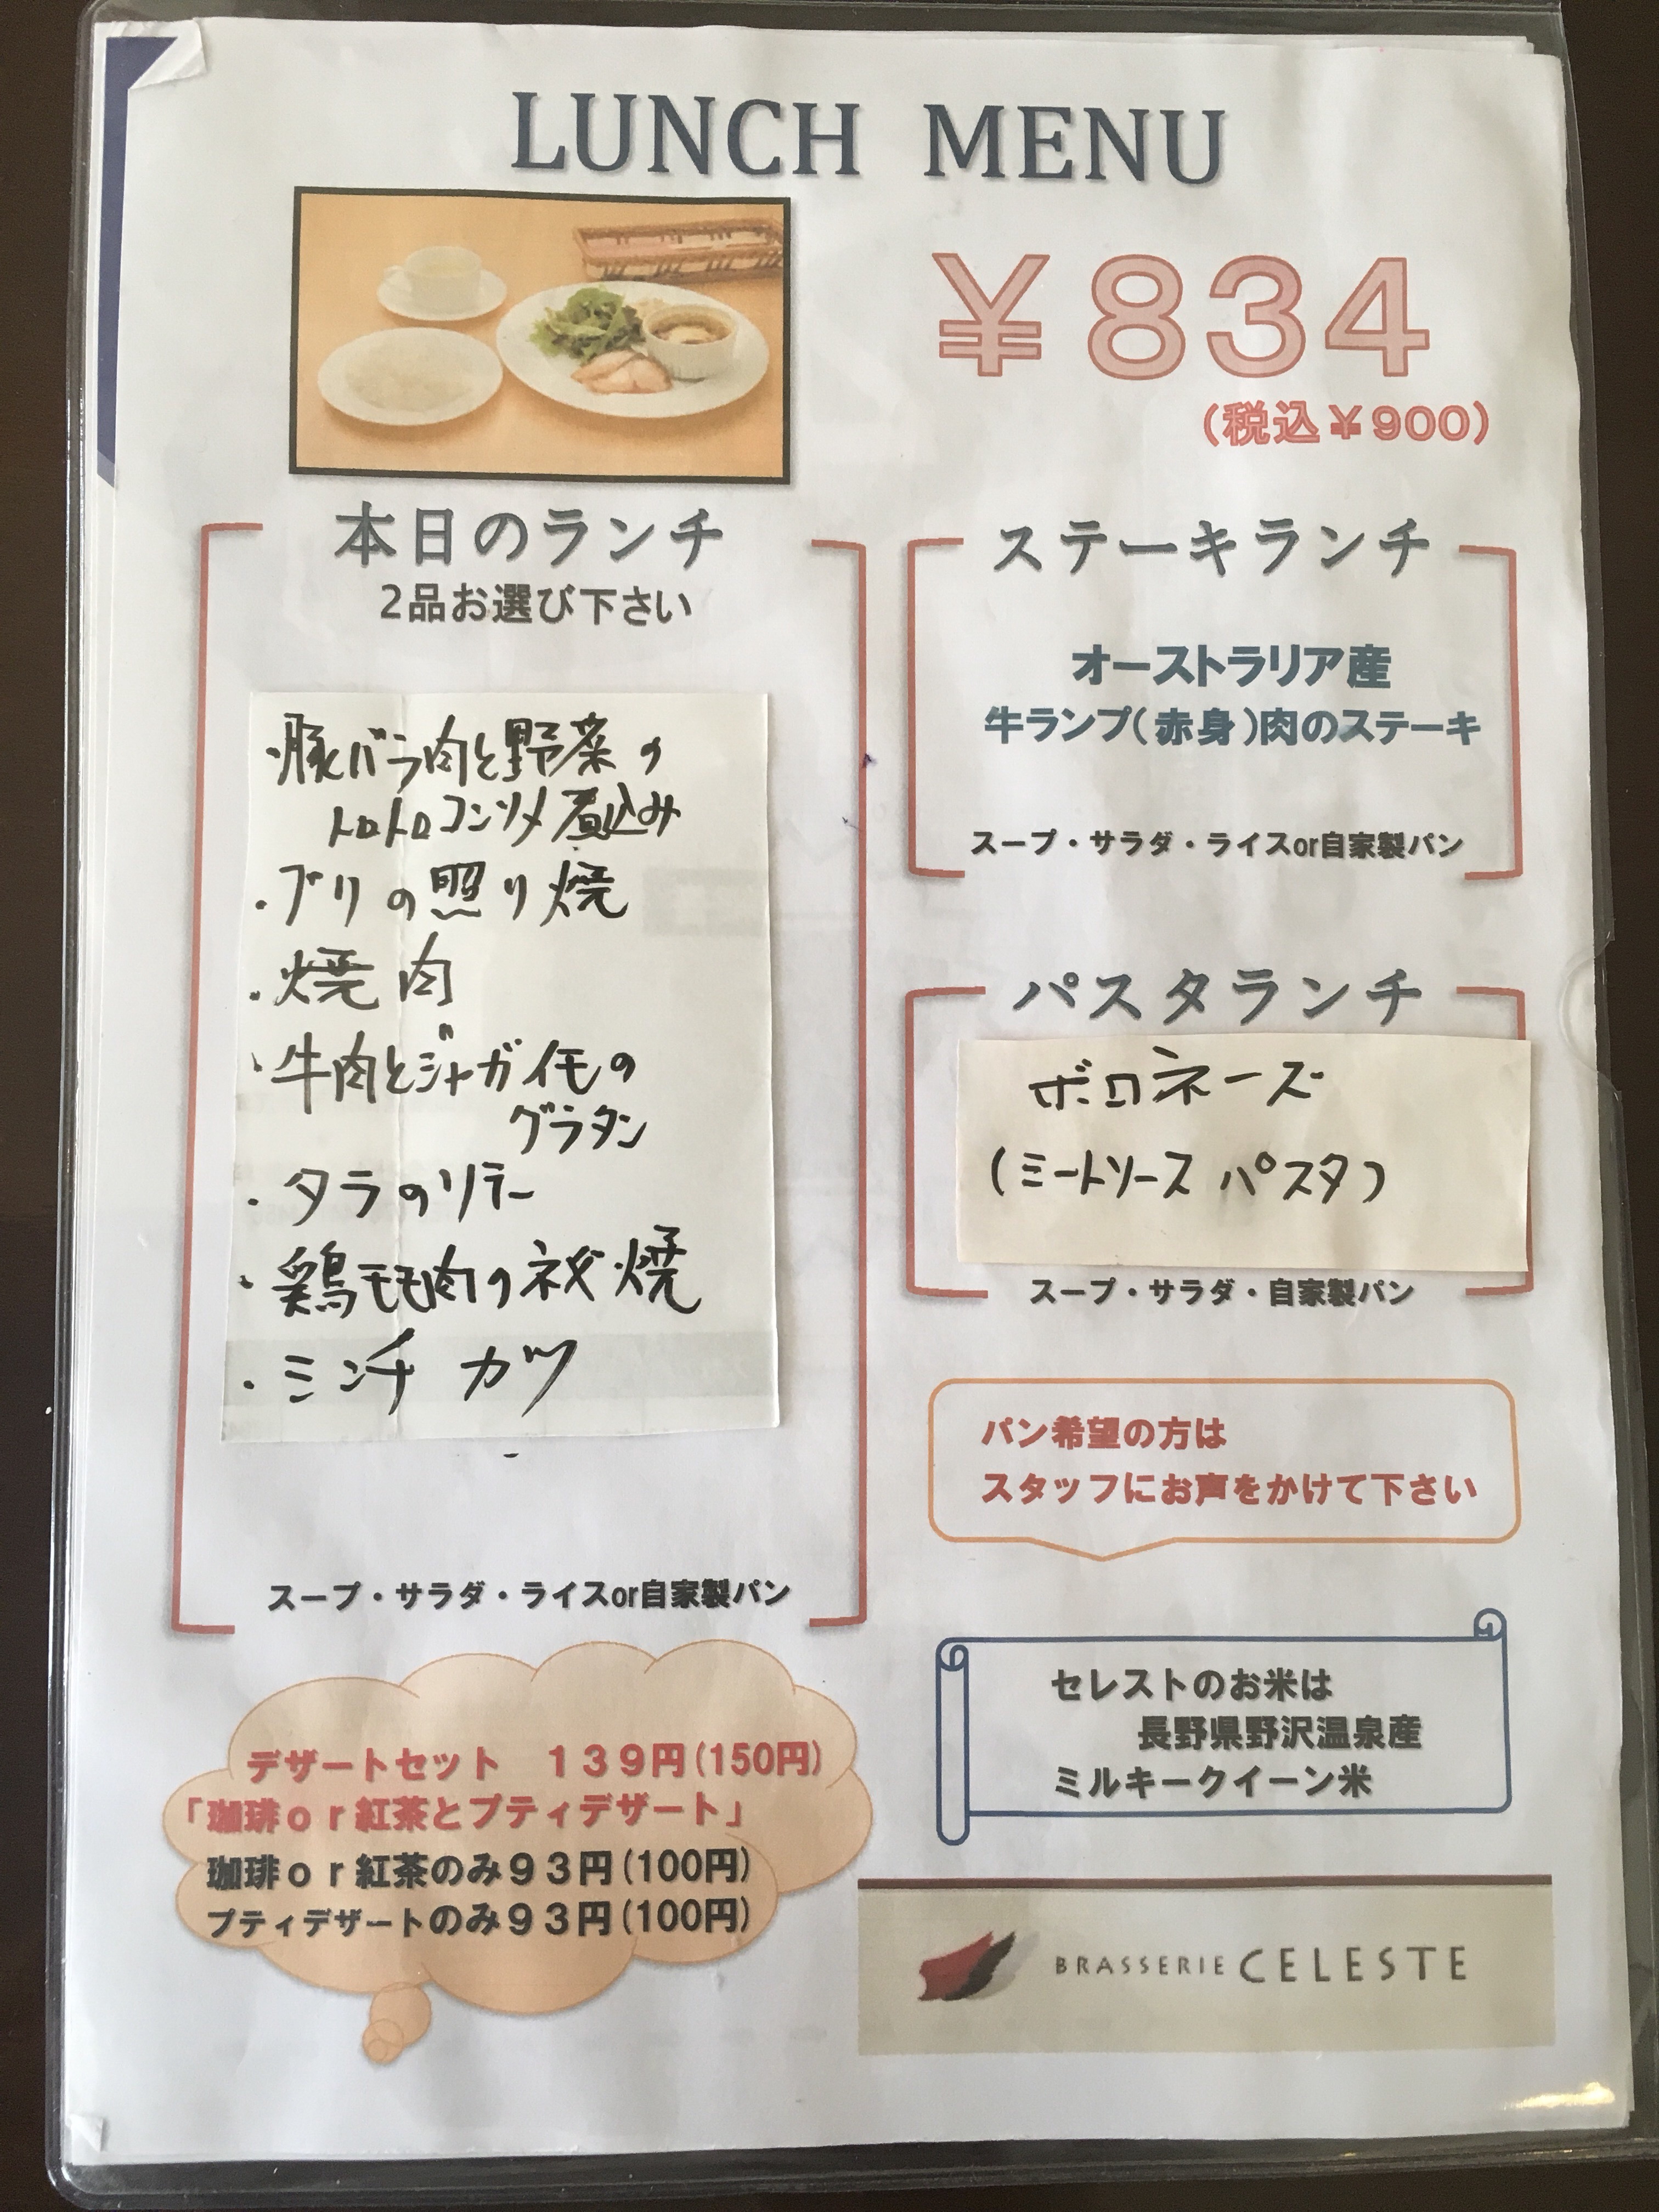 LUNCH MENU
￥834
(税込￥900)
本日のランチ
2品お選び下さい
・豚バラ肉と野菜の
トロトロコンソメ煮込み
・ブリの照り焼
・焼肉
・牛肉とジャガイモの
グラタン
・タラのソテー
・鶏モモ肉のネギ焼
・ミンチカツ
スープ・サラダ・ライスor自家製パン
ステーキランチ
オーストラリア産
牛ランプ(赤身)肉のステーキ
スープ・サラダ・ライスor自家製パン
パスタランチ
ボロネーズ
(ミートソース パスタ)
スープ・サラダ・自家製パン
パン希望の方は
スタッフにお声をかけて下さい
デザートセット　１３９円(150円)
「珈琲ｏｒ紅茶とプティデザート」
珈琲ｏｒ紅茶のみ９３円(100円)
プティデザートのみ９３円(100円)
セレストのお米は
長野県野沢温泉産
ミルキークイーン米
BRASSERIE CELESTE